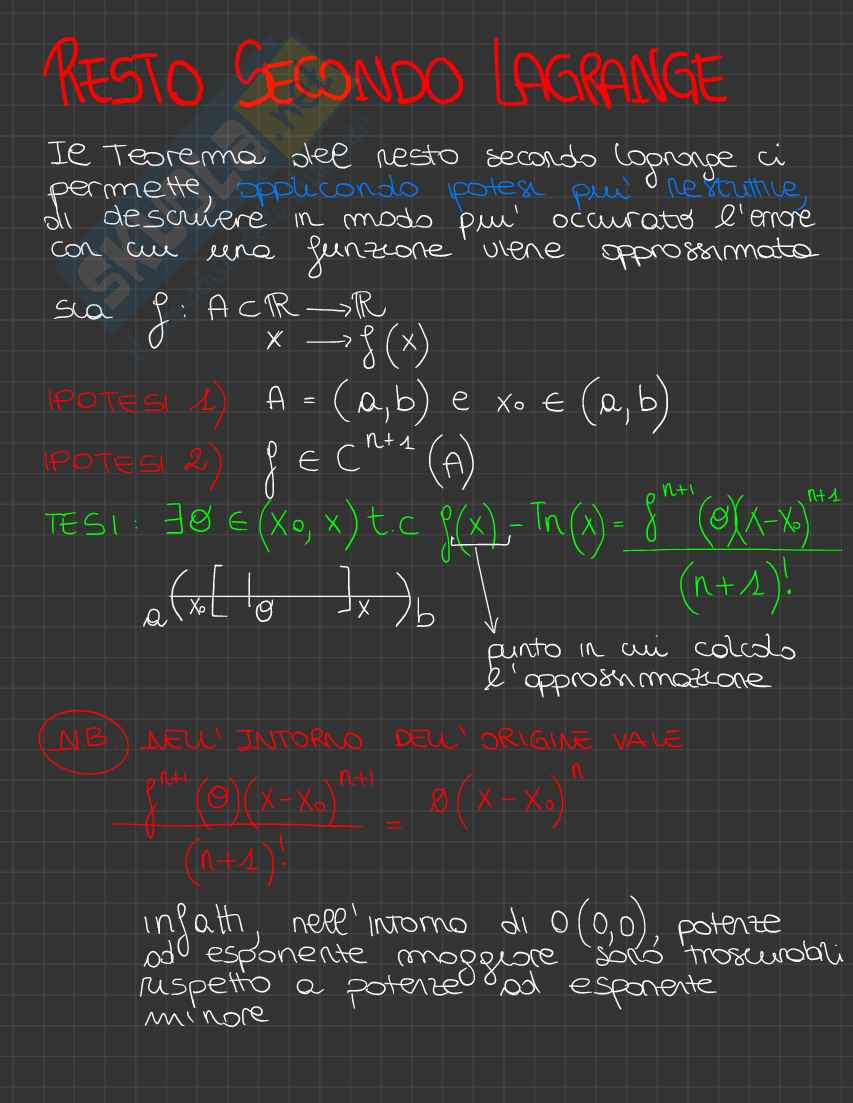 RESTO SECONDO LAGRANGE
Il Teorema del resto secondo lagrange ci
permette, applicando ipotesi piu' restrittive,
di descrivere in modo piu' accurato l'errore
con cui una funzione viene approssimata
sia f : A ⊂ ℝ → ℝ
x → f(x)
IPOTESI 1) A = (a,b) e x₀ ∈ (a,b)
IPOTESI 2) f ∈ Cⁿ⁺¹ (A)
TESI : ∃θ ∈ (x₀, x) t.c f(x) - Tn(x) = fⁿ⁺¹(θ)(x-x₀)ⁿ⁺¹ / (n+1)!
a ( x₀ [ θ ] x ) b
punto in cui calcolo
l'approssimazione
NB NELL' INTORNO DELL' ORIGINE VALE
fⁿ⁺¹(θ)(x-x₀)ⁿ⁺¹ / (n+1)! = o(x-x₀)ⁿ
infatti, nell'intorno di O(0,0), potenze
ad esponente maggiore sono trascurabili
rispetto a potenze ad esponente
minore
skuola.net